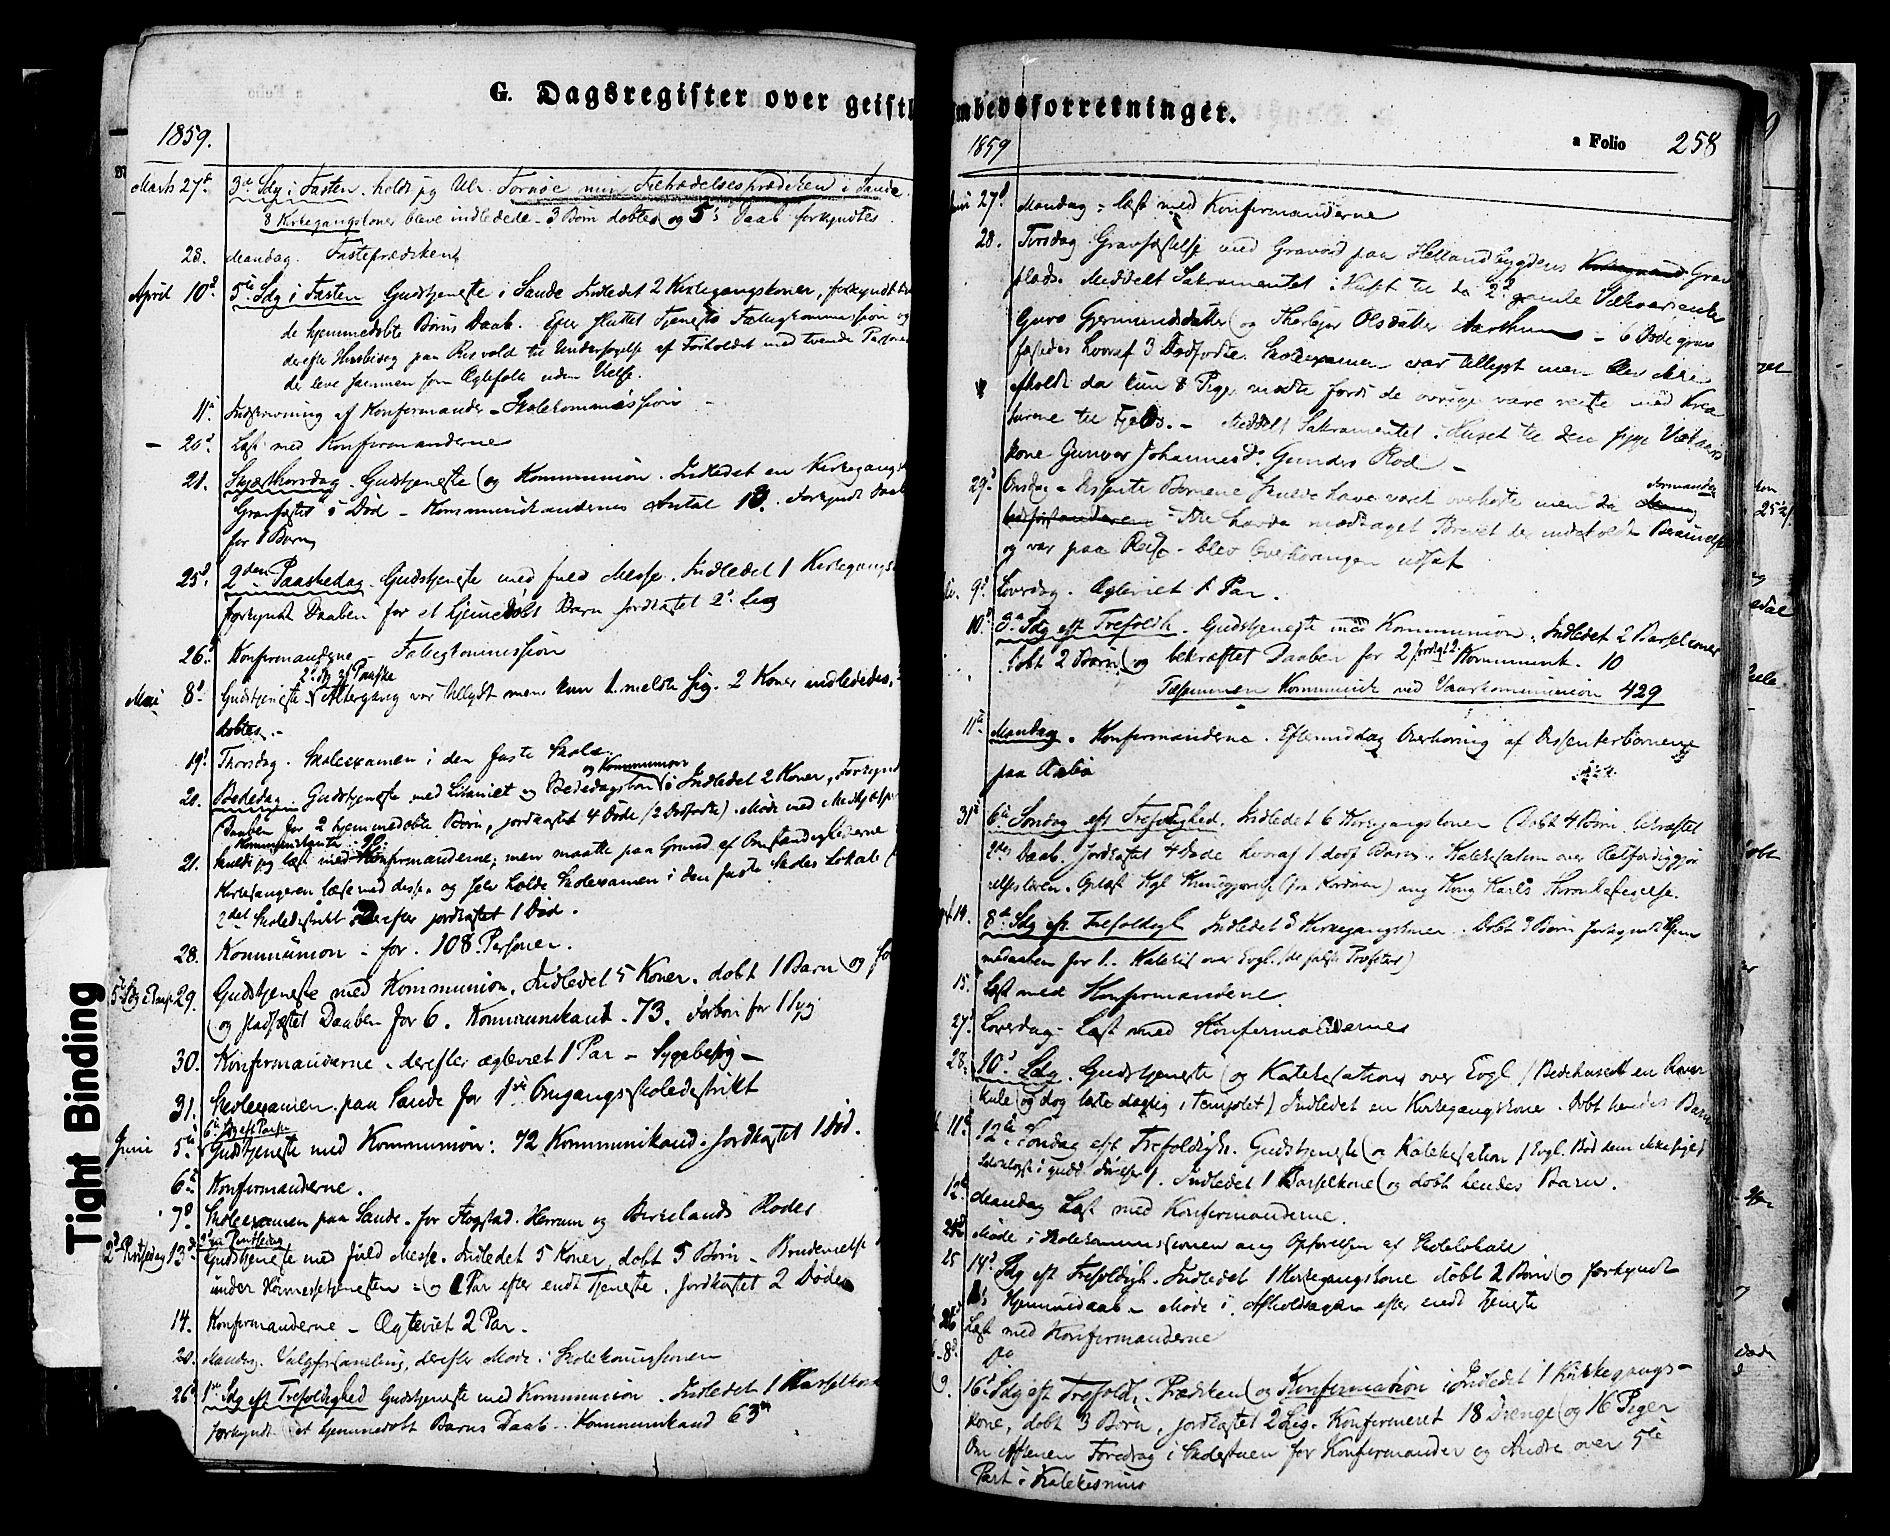 G. Dagsregister over geistl
1859.
Marts 27de 3de Sdg i Fasten. holdt jeg Ulr. Tornøe min Tiltrædelsesprædiken i Sande.
8 Kirkegangskoner bleve indledede - 3 Børn døbtes og 5s Daab forkyndtes
28. Mandag. Fasteprædiken
April 10d 5te Sdg i Fasten Gudstjeneste i Sande Indledet 2 Kirkegangskoner, forkyndt
de hjemmedøbte Børns Daab. Efter sluttet Tjeneste Fattigkommission og
derefter paa Risvold til Undersøgelse af Forholdet med tvende Personer
der leve sammen som Ægtefolk uden Vielse.
11te Indskrivning af Konfirmander - Skolekommission -
- 20d Læst med Konfirmanderne
21. Skjærthorsdag. Gudstjeneste og Kommunion. Indledet en Kirkegangsk
Gravfæstet 1 Død - Kommunikandernes Antal 18. Forkyndt Daab
for 1 Barn
25d 2den Paaskedag. Gudstjeneste med fuld Messe. Indledet 1 Kirkegangs
forkyndt Daaben for et hjemdøbt Barn jordkastet 2d Lig
26d Konfirmanderne - Fattigkommission
2d Sdg eft Paaske
Mai 8d Gudstjeneste. Altergang var tillyst men kun 1 meldte sig. 2 Koner indlededes,
døbtes. -
19d Thorsdag. Skoleexamen i den faste Skole.
og Kommunion
20. Bededag. Gudstjeneste med Litaniet og Bededagsbøn. Indledet 2 Koner, Forkyndt
Daaben for 2 hjemmedøbte Børn, jordkastet 4 Døde (2 Dødfødte). Møde med Medhjelper
21. skulde jeg læst med Konfirmanderne; men maatte paa Grund af Omstændighederne
Kirkesangeren læse med disse og selv holde Skoleexamen i den faste Skoles Lokale
2det Skoledistrikt. Derefter jordkastet 1 Død.
28. Kommunion - for 108 Personer.
5te Sdg e. Paaske 29. Gudstjeneste med Kommunion. Indledet 5 Koner. døbt 1 Barn og
og stadfæstet Daaben for 6. Kommunikant. 73. Forbøn for 1 Syg
30. Konfirmanderne. derefter ægteviet 1 Par - Sygebesøg -
31. Skoleexamen paa Sande for 1ste Omgangsskoledistrikt
6te Sdg eft Paaske
Juni 5te Gudstjeneste med Kommunion: 72 Kommunikand. Jordkastet 1 Død.
6te Konfirmanderne.
7d Skoleexamen paa Sande for Flogstad. Herrum og Birkelands Roder
2den Pintsedag
2d Pintsedag 13d Gudstjeneste med fuld Messe. Indledet 5 Koner, døbt 5 Børn - Brudevielse
under Høimessetjenesten - og 1 Par efter endt Tjeneste. Jordkastet 2 Døde
14. Konfirmanderne - Ægteviet 2 Par.
20. Mandag. Valgforsamling, derefter Møde i Skolekommissionen
26d 1ste Sdg eft Trefoldighed Gudstjeneste med Kommunion. Indledet 1 Barselkone
Forkyndt et hjemmedøbt Barns Daab. Kommunikand 63
mbedsforretninger.
1859
a Folio 258
Juni 27d Mandag - læst med Konfirmanderne
28. Tirsdag Gravfæstelse med Gravord paa Hellandsbygdens Grav
plads. Meddelt Sakramentet i Huset til de 2d gamle
Guro Gjermundsdatter og Thorbjør Olsdatter Aarthun - 6 Døde grav
fæstedes hvoraf 3 Dødfødte. Skoleexamen var tillyst men blev ikke
afholdt da kun 8 Pige mødte fordi de øvrige vare reiste med Krea
turene til Fjelds. - Meddelt Sakramentet i Huset til den syge
kone Gunvor Johannesd. Gundes Rød -
29d Onsdag - Dissenter Børnene skulde have været overhørte men da Formanden
ikke havde modtaget Brevet der indeholdt Berammelse
og var paa Reise - blev Overhøringen udsat
9d Løverdag. Ægteviet 1 Par.
10d 3die Sdg eft Trefoldh. Gudstjeneste med Kommunion. Indledet 2 Barselkoner
døbt 2 Børn og bekræftet Daaben for 2 Kommunik. 10
Tilsammen Kommunik ved Vaarkommunion 429
11te Mandag. Konfirmanderne. Eftermiddag Overhøring af Dissenterbørnene
paa
31te 6te Søndag eft Trefoldighed. Indledet 6 Kirkegangskoner Døbt 4 Børn, bekræftet
Daab. Jordkastet 4 Døde hvoraf 1 dødf Barn. Katekisation over Retfærdiggjør
elseslæren. Oplæst Kgl Kundgjørelse (fra Kordøren) ang Kong Karls Thronbestigelse.
14. 8de Sdg eft Trefoldigh Indledet 3 Kirkegangskoner. Døbt 3 Børn forkyndt Hjem
medaaben for 1. Katekis over Evgl. (de falske Profeter)
15. Læst med Konfirmanderne.
27. Løverdag - Læst med Konfirmandernes
28. 10d Sdg. Gudstjeneste og Katekisation over Evgl (Bedehuset en Røver
kule og dog lærte daglig i Templet) Indledet en Kirkegangskone. Døbt hendes Barn
11te 12te Søndag eft Trefoldigh. Gudstjeneste og Katekisation
Indledet 1 Barselkone og døbt hendes Barn.
12te Mandag Læst med Konfirmanderne.
Møde i Skolekommissionen ang Opførelsen af Skolelokale
25 14d Sdg eft Trefoldigh. Indledet 1 Kirkegangskone døbt 2 Børn og forkyndt
1s Hjemmedaab - Møde i Afholdssagen efter endt Tjeneste
26 Læst med Konfirmanderne
8d Do
9. 16d Sdg eft Trefoldh. Prædiken og Konfirmation. Indledet 1 Kirkegangs-
kone, døbt 3 Børn, jordkastet 2 Lig. Konfirmeret 18 Drenge og 16 Piger
Om Aftenen Foredrag i Sadestuen for Konfirmander og Andre over 5te
Part i Katekismus
Tight Binding